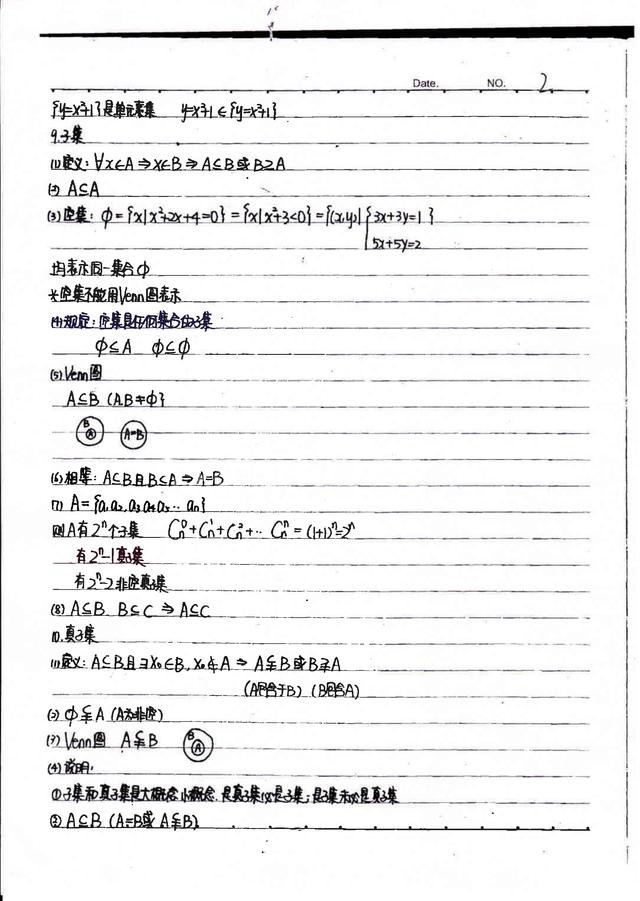 Date. NO. 2
{y=x²+1}是单元素集 y=x²+1∈{y=x²+1}
9.子集
(1)定义:∀x∈A⇒x∈B⇒A⊆B或B⊇A
(2) A⊆A
(3)空集:φ={x|x²+2x+4=0}={x|x²+3<0}={(x,y)|{3x+3y=1 }
5x+5y=2
均表示同一集合φ
*空集不能用Venn图表示
(4)规定:空集是任何集合的子集
φ⊆A φ⊆φ
(5) Venn图
A⊆B (A,B≠φ}
B A A=B
(6)相等:A⊆B且B⊆A⇒A=B
(7) A={a₁,a₂,a₃,a₄,a₅…aₙ}
则A有2ⁿ个子集 Cₙ⁰+Cₙ¹+Cₙ²+…Cₙⁿ=(1+1)ⁿ=2ⁿ
有2ⁿ-1真子集
有2ⁿ-2非空真子集
(8) A⊆B B⊆C ⇒A⊆C
10.真子集
(1)定义:A⊆B且∃x₀∈B,x₀∉A⇒A⫋B或B⫌A
(A包含于B) (B包含A)
(2) φ⫋A(A为非空)
(3) Venn图 A⫋B B A
(4)说明:
①子集和真子集是大概念小概念,是真子集必是子集;是子集未必是真子集
② A⊆B (A=B或A⫋B)